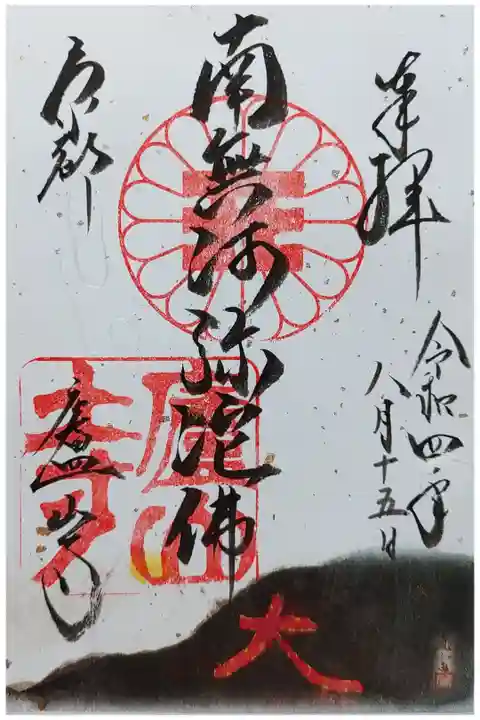 奉拝
令和四年
八月十五日
南無阿弥陀佛
京都
廬山寺
廬山寺
大